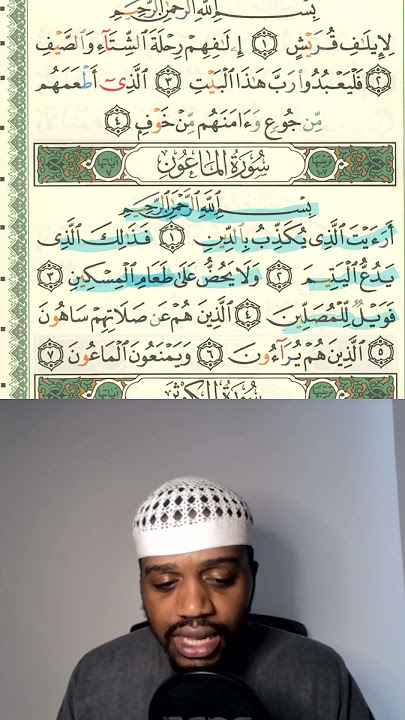 بِسْمِ ٱللَّهِ ٱلرَّحْمَٰنِ ٱلرَّحِيمِ
لِإِيلَٰفِ قُرَيْشٍ ١ إِۦلَٰفِهِمْ رِحْلَةَ ٱلشِّتَآءِ وَٱلصَّيْفِ
٢ فَلْيَعْبُدُوا۟ رَبَّ هَٰذَا ٱلْبَيْتِ ٣ ٱلَّذِىٓ أَطْعَمَهُم
مِّن جُوعٍ وَءَامَنَهُم مِّنْ خَوْفٍۭ ٤
سُورَةُ ٱلْمَاعُونِ
بِسْمِ ٱللَّهِ ٱلرَّحْمَٰنِ ٱلرَّحِيمِ
أَرَءَيْتَ ٱلَّذِى يُكَذِّبُ بِٱلدِّينِ ١ فَذَٰلِكَ ٱلَّذِى
يَدُعُّ ٱلْيَتِيمَ ٢ وَلَا يَحُضُّ عَلَىٰ طَعَامِ ٱلْمِسْكِينِ ٣
فَوَيْلٌ لِّلْمُصَلِّينَ ٤ ٱلَّذِينَ هُمْ عَن صَلَاتِهِمْ سَاهُونَ
٥ ٱلَّذِينَ هُمْ يُرَآءُونَ ٦ وَيَمْنَعُونَ ٱلْمَاعُونَ ٧
سُورَةُ ٱلْكَوْثَرِ